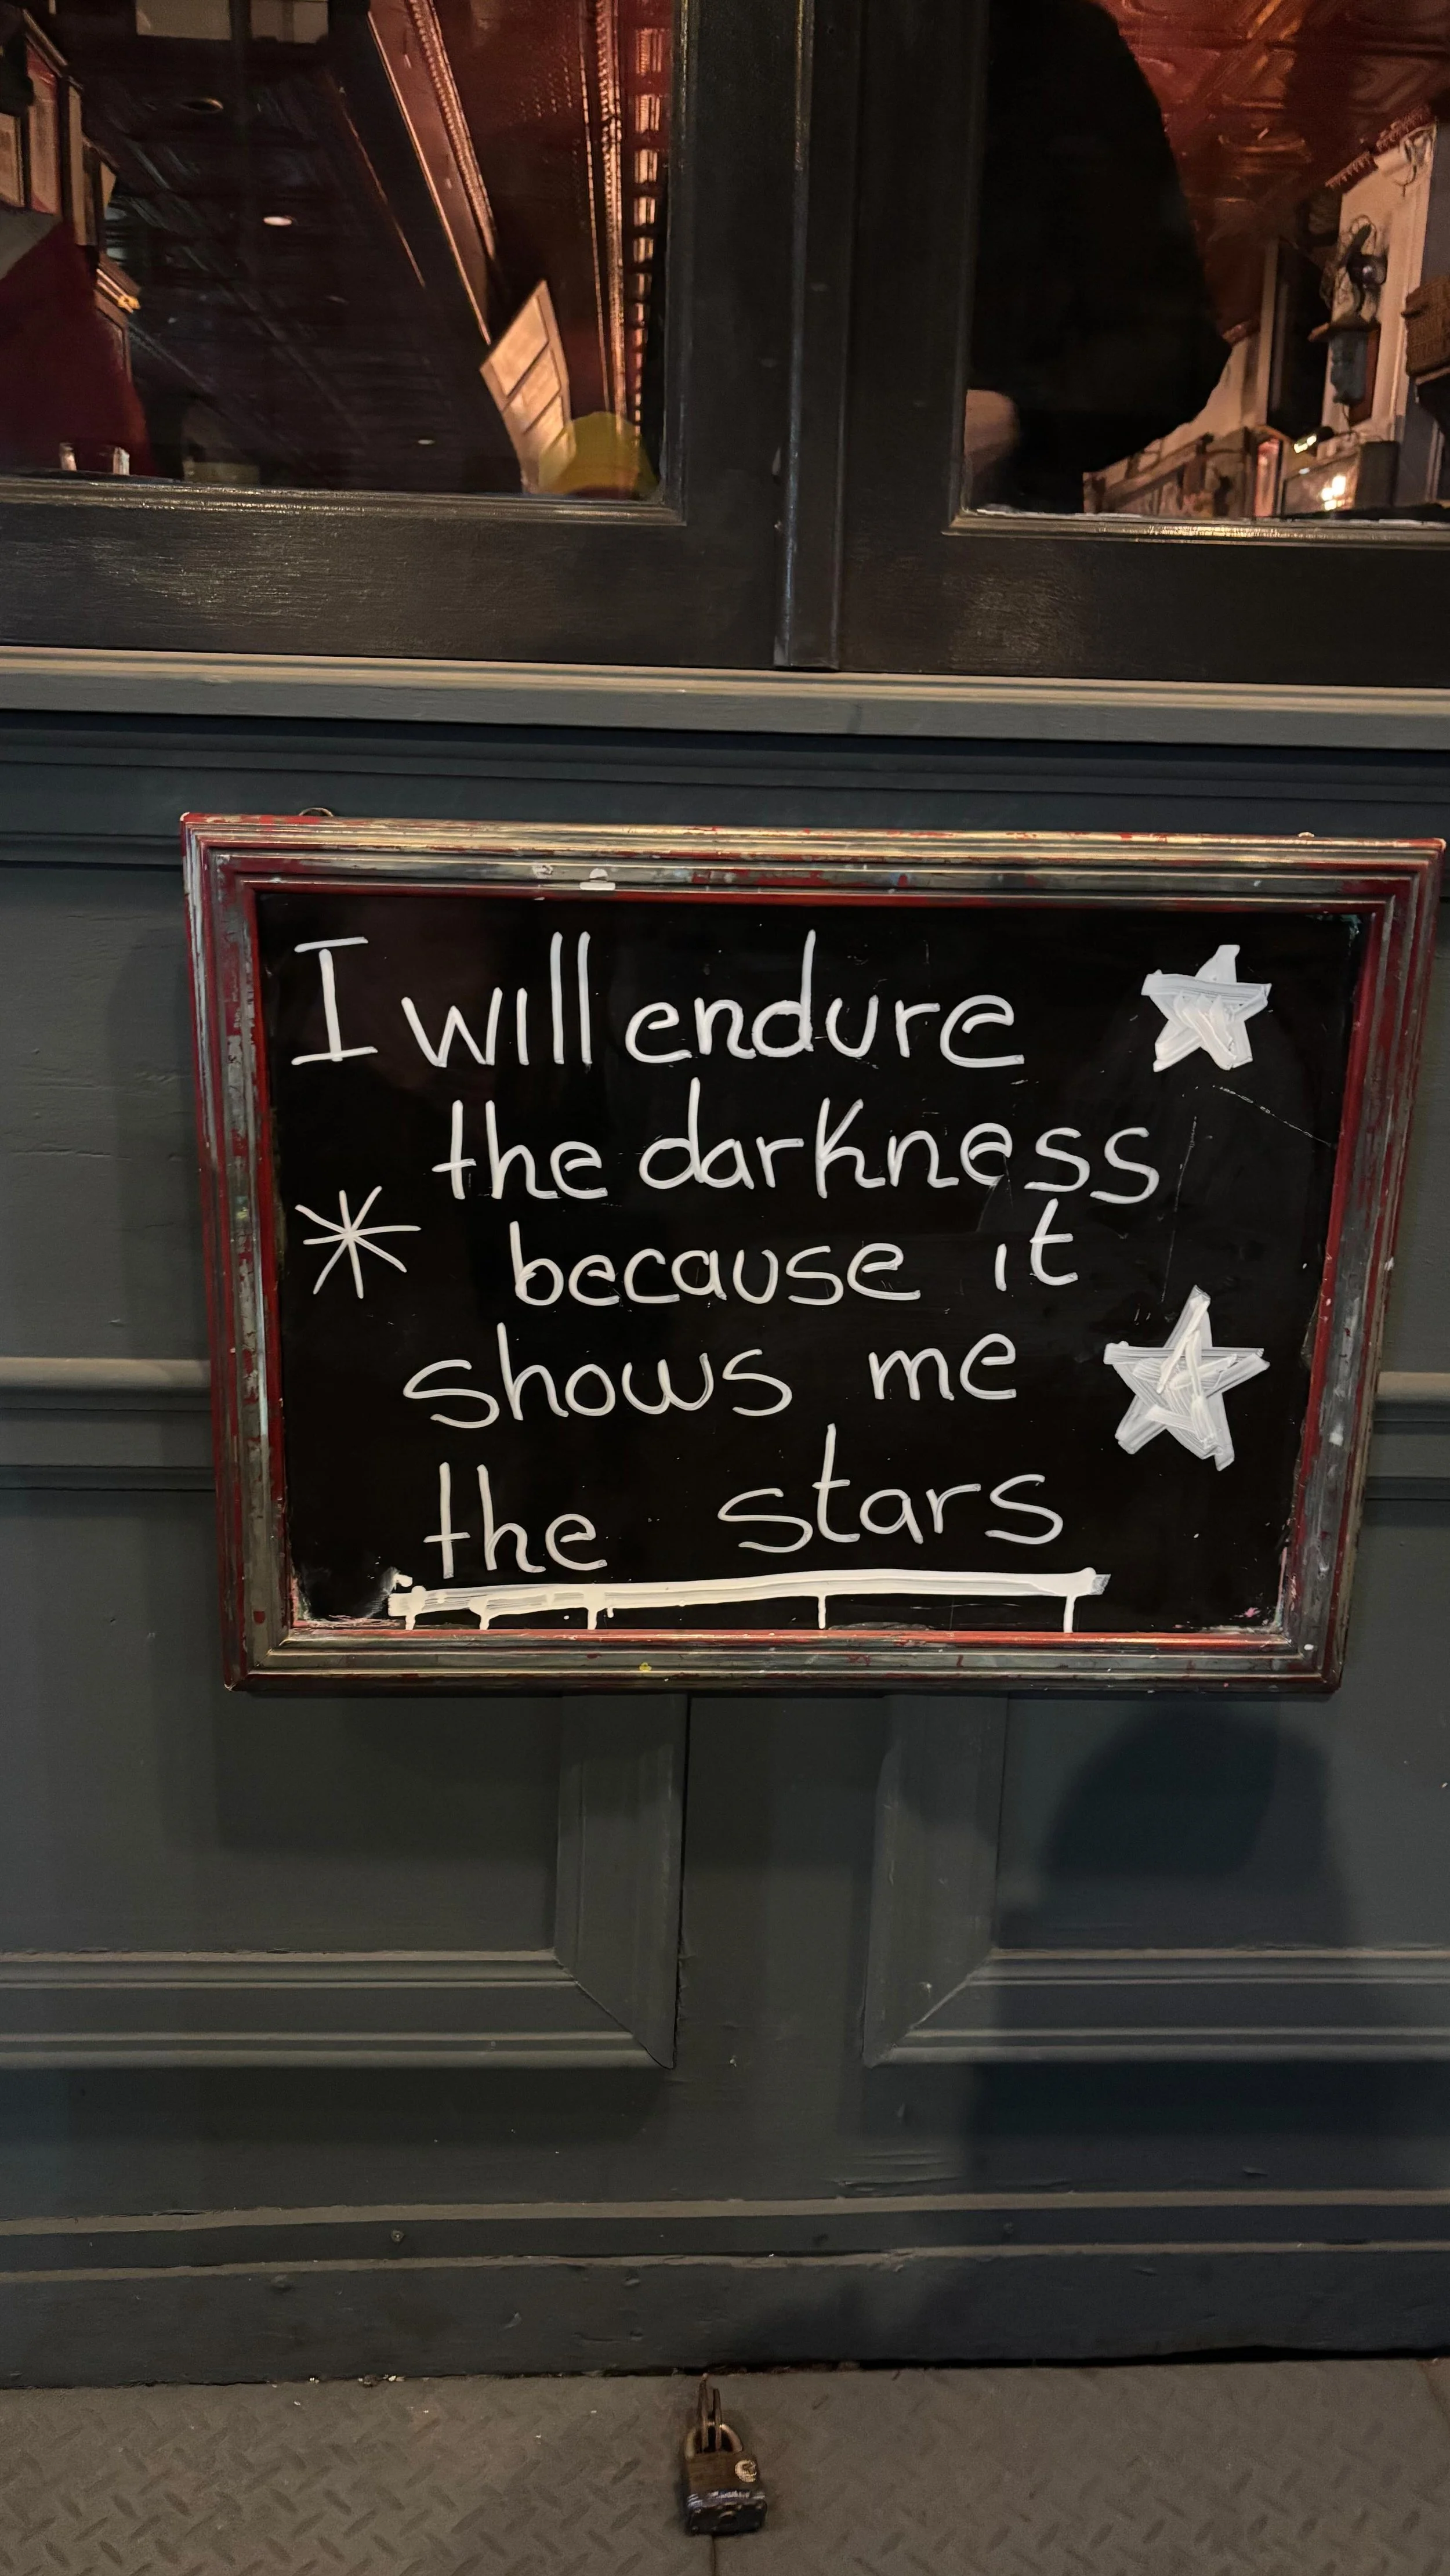 I will endure
the darkness
because it
shows me
the stars